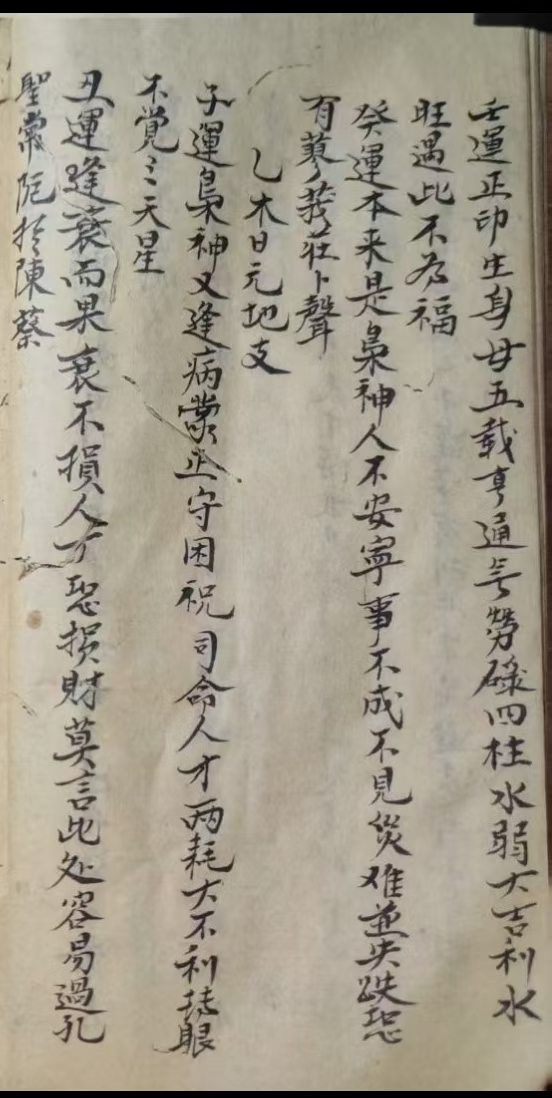 壬運正印生身母五載亨通無勞碌四柱水弱大吉利水
旺遇此不为福
癸運本来是梟神人不安寧事不成不見災难並失跌恐
有蓼莪莊卜聲
乙木日元地支
子運梟神又逢病蒙正守困祝司命人才两耗大不利转眼
不覚〻天星
丑運逢衰而果衰不損人丁恐损財莫言此处容易過孔
聖常阨於陳蔡